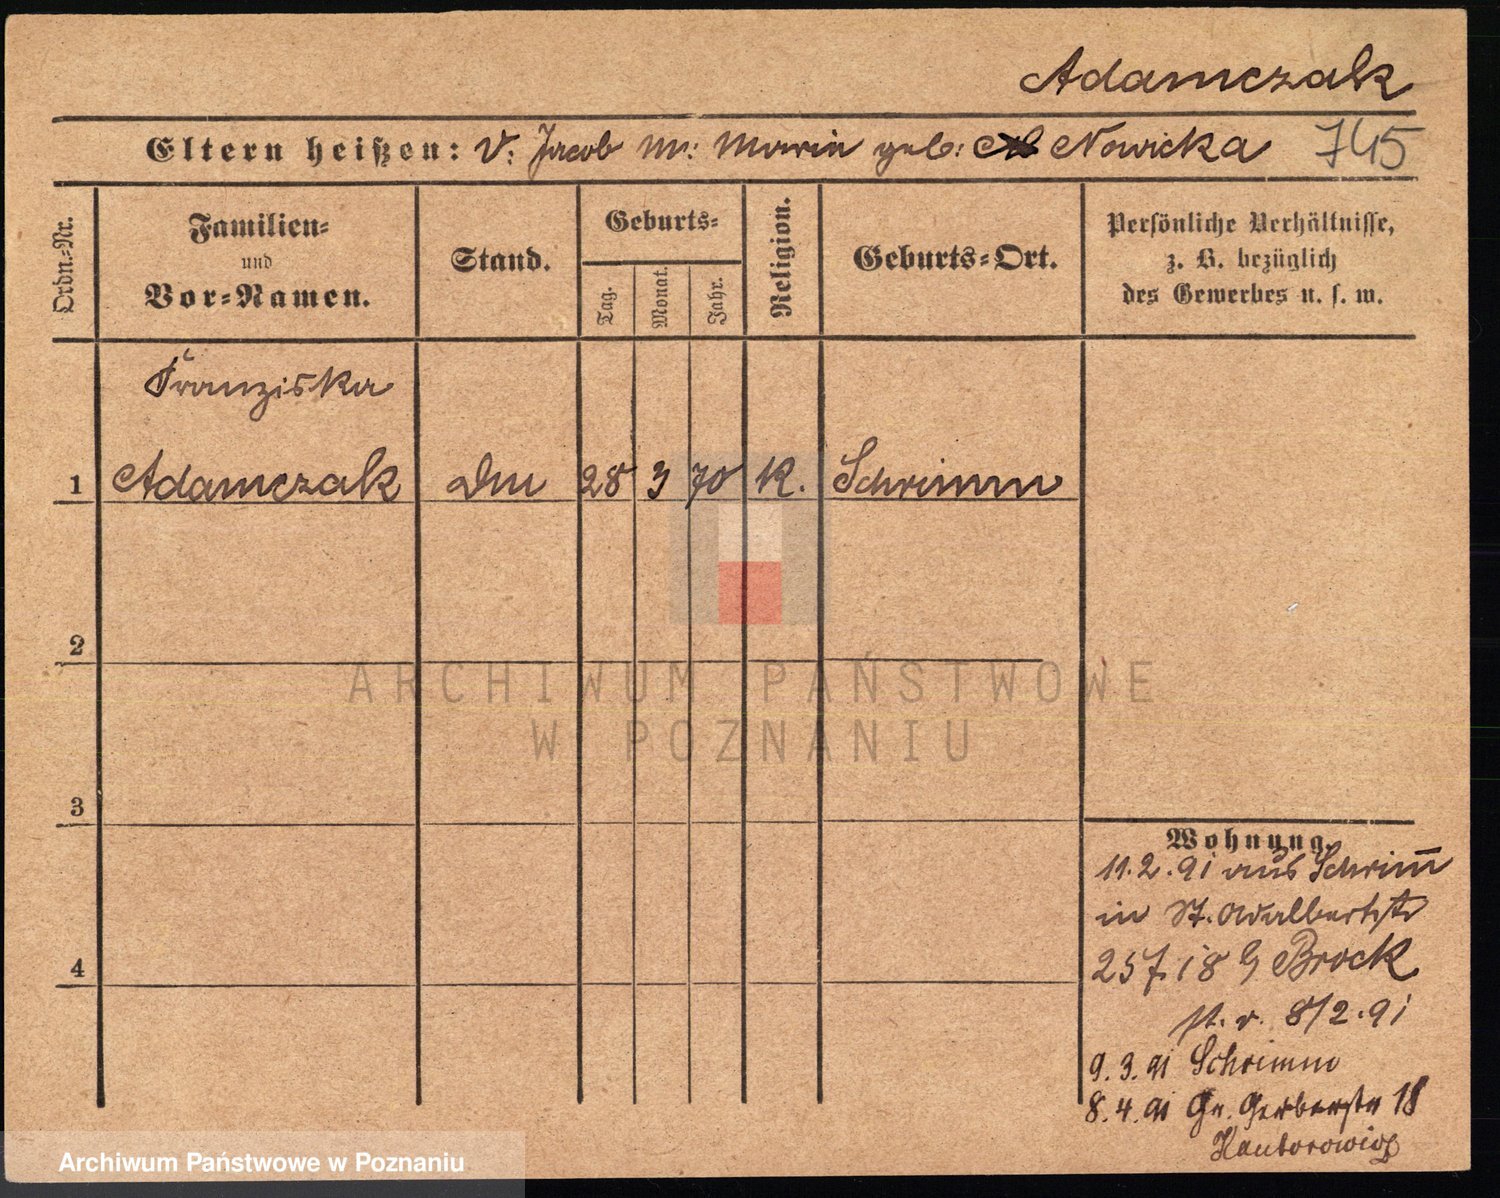 Adamczak
Eltern heißen: V: Jacob M: Marie geb: Nowicka 745
Ordn.-Nr.
Familien-
und
Vor-Namen.
Stand.
Geburts-
Tag.
Monat.
Jahr.
Religion.
Geburts-Ort.
Persönliche Verhältnisse,
z. B. bezüglich
des Gewerbes u. s. w.
Franziska
1 Adamczak 28 3 70 K. Schrimm
2
3
4
Wohnung.
11.2.91 aus Schrim̅
in St. Adalbertstr
25/. 18 Brock
st. v. 8/2.91
9.3.91 Schrimm
8.4.91 Gr. Gerberstr 18
Kantorowicz
ARCHIWUM PAŃSTWOWE
W POZNANIU
Archiwum Państwowe w Poznaniu